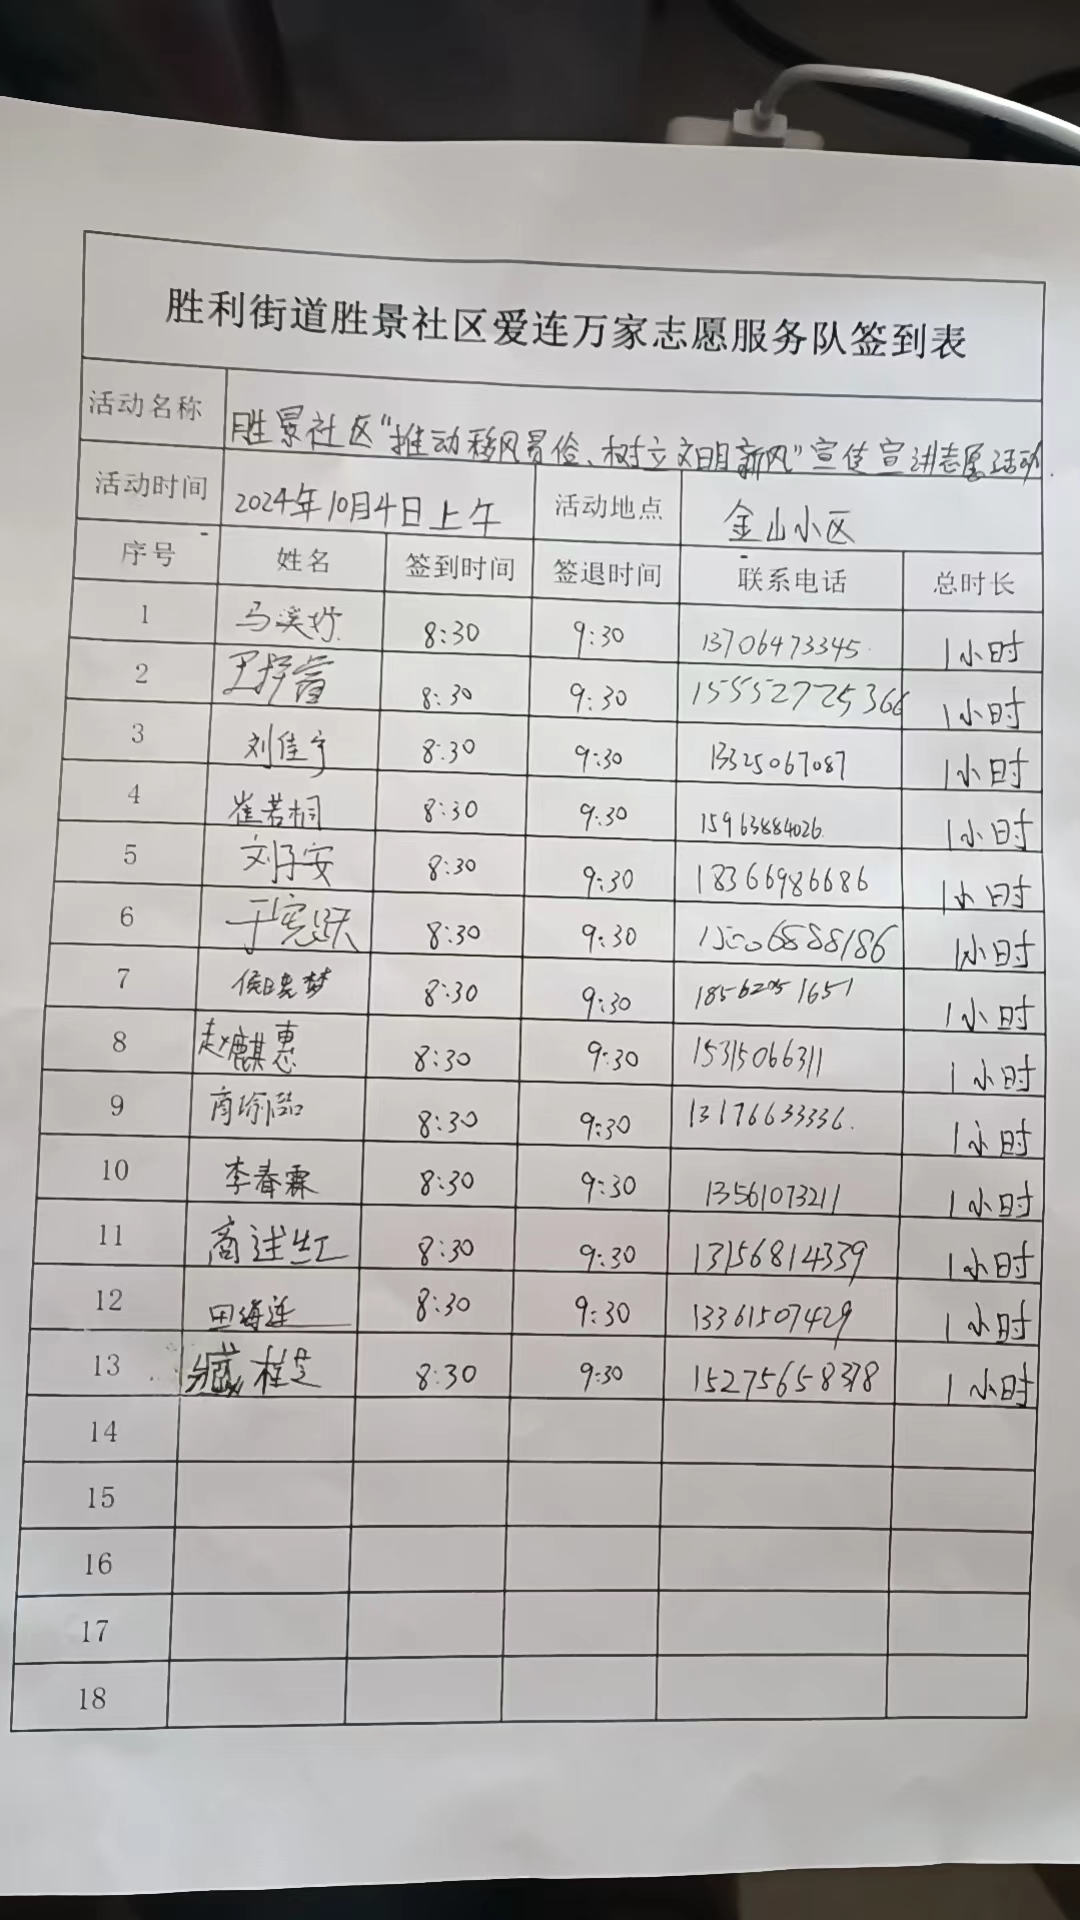 胜利街道胜景社区爱连万家志愿服务队签到表
活动名称 胜景社区“推动移风易俗、树立文明新风”宣传宣讲志愿活动.
活动时间 2024年10月4日上午 活动地点 金山小区
序号 姓名 签到时间 签退时间 联系电话 总时长
1 马溪 8:30 9:30 13706473345 1小时
2 8:30 9:30 15552725366 1小时
3 刘佳宁 8:30 9:30 13325067087 1小时
4 崔若桐 8:30 9:30 15963884026. 1小时
5 刘子安 8:30 9:30 18366986686 1小时
6 于宪跃 8:30 9:30 15006888186 1小时
7 侯晓梦 8:30 9:30 18562051651 1小时
8 赵麒惠 8:30 9:30 15315066311 1小时
9 商瑜 8:30 9:30 13176633336. 1小时
10 李春霖 8:30 9:30 13561073211 1小时
11 商述红 8:30 9:30 13156814339 1小时
12 田海连 8:30 9:30 13361507429 1小时
13 臧桂芝 8:30 9:30 15275658378 1小时
14
15
16
17
18